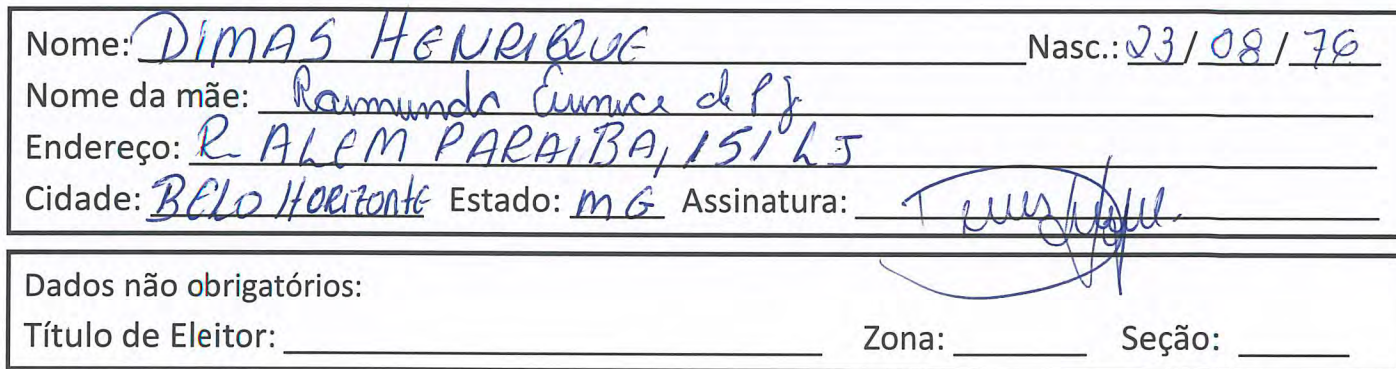 Nome: DIMAS HENRIQUE Nasc.: 23/08/76
Nome da mãe: Raimunda Eunice de P J.
Endereço: R ALEM PARAIBA, 151 LJ
Cidade: BELO HORIZONTE Estado: MG Assinatura:
Dados não obrigatórios:
Título de Eleitor: Zona: Seção: